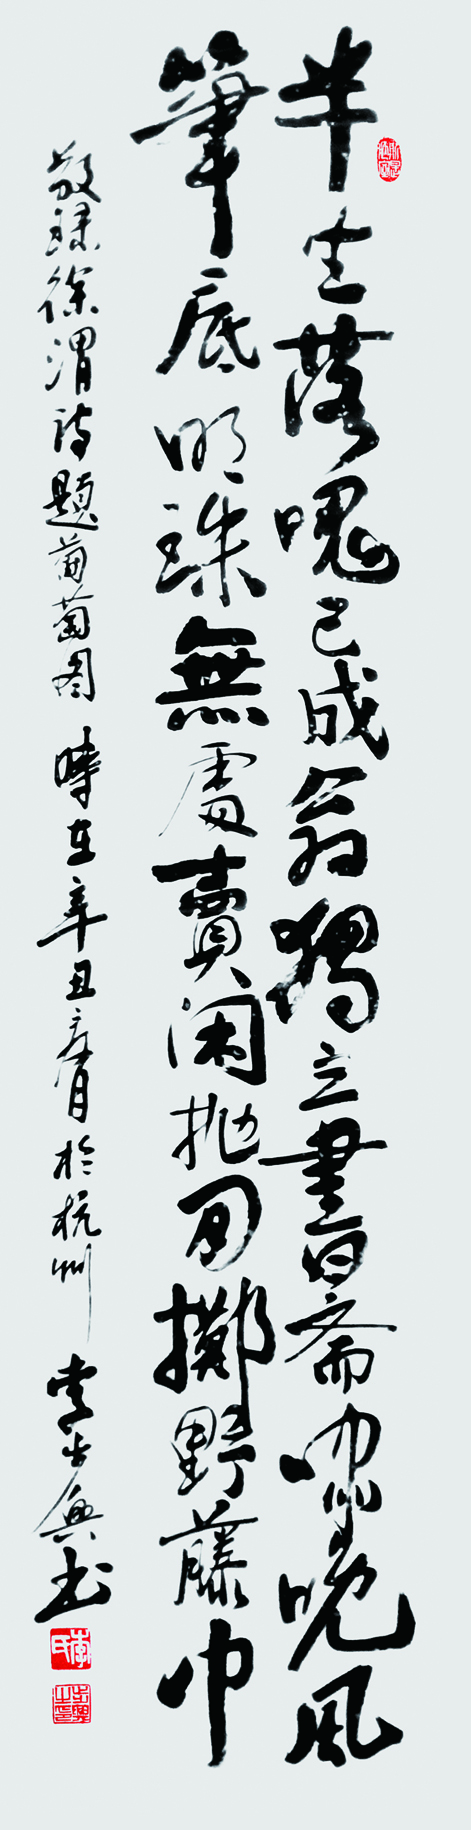 半生落魄已成翁獨立書齋嘯晚風
筆底明珠無處賣閑拋閑擲野藤中
敬録徐渭詩題葡萄圖 時在辛丑月於杭州 李興書
李氏